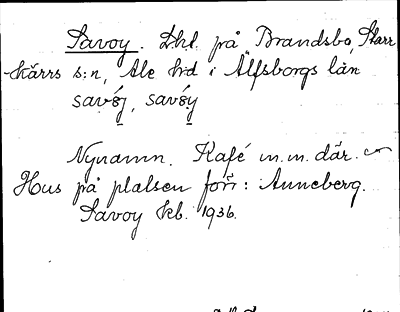 Savoy. Lht. på Brandsbo, Starr
kärrs s:n, Ale hd i Älfsborgs län
savǿj, savǿy
Nynamn. Kafé m.m. där.
Hus på platsen förr: Anneberg.
Savoy kb. 1936.